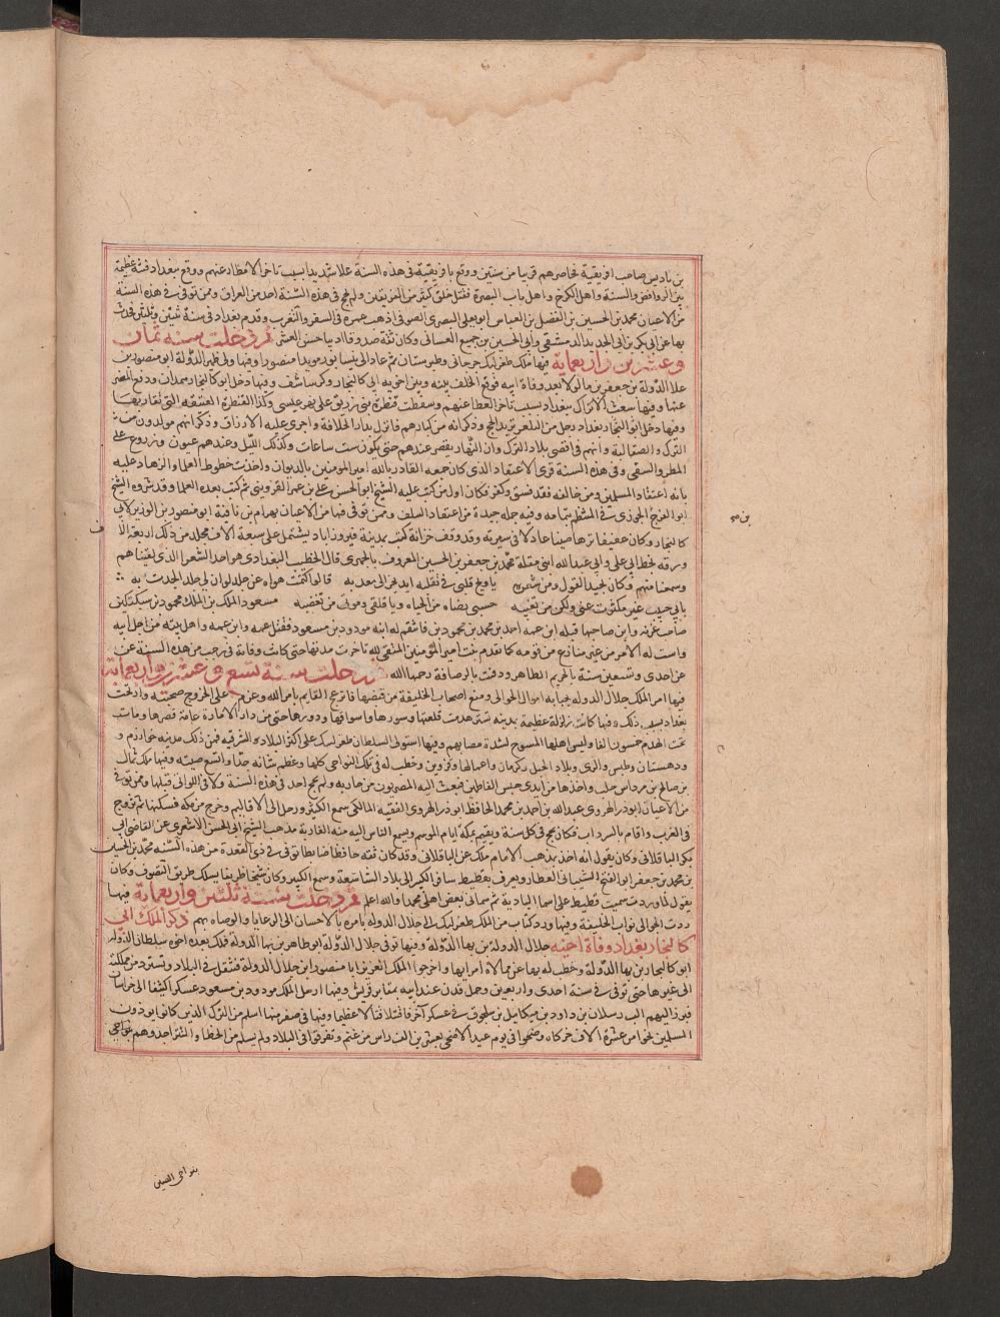 بن باديس صاحب افريقية فحاصرهم قريبا من سنتين ووقع بافريقية في هذه السنة غلا شديد بسبب تاخر الامطار عنهم ووقع ببغداد فتنة عظيمة
بين الروافض والسنة واهل الكرخ واهل باب البصرة فقتل خلق كثير من الفريقين ولم يحج في هذه السنة احد من العراق وممن توفي في هذه السنة
من الاعيان محمد بن الحسين بن الفضل بن العباس ابو يعلى البصري الصوفي اذهب عمره في السفر والتغرب وقدم بغداد في سنة ثنتين وثلثين فحدث
بها عن ابي بكر بن ابي الحديد الدمشقي وابي الحسين بن جميع الغساني وكان ثقة صدوقا اديبا حسن الشعر ثم دخلت سنة ثمان
وعشرين واربعماية فيها ملك طغرلبك جرجان وطبرستان ثم عاد الى نيسابور مويدا منصورا وفيها ولي ظهير الدولة ابو منصور بن
علا الدولة بن جعفر بن كالويه بعد وفاة ابيه فوقع الخلف بينه وبين اخويه ابي كاليجار وكرساشف وفيها دخل ابو كاليجار همدان ودفع الغز
عنها وفيها شعث الاتراك ببغداد بسبب تاخر العطا عنهم وسقطت قنطرة بني زريق على نهر عيسى وكذا القنطرة العتيقة التي تقاربها
وفيها دخل ابو النجار بغداد رجل من البلغر يريد الحج وذكر انه من كبارهم فانزل بدار الخلافة واجري عليه الارزاق وذكر انهم مولدون من
الترك والصقالبة وانهم في اقصى بلاد الترك وان النهار يقصر عندهم حتى يكون ست ساعات وكذلك الليل وعندهم عيون وزروع على
المطر والسقي وفي هذه السنة قرئ الاعتقاد الذي كان جمعه القادر بالله امير المومنين بالديوان واخذت خطوط العلما والزهاد عليه
بانه اعتقاد المسلمين ومن خالفه فقد فسق وكفر فكان اول من كتب عليه الشيخ ابو الحسن علي بن عمر القزويني ثم كتب بعده العلما وقد سرده الشيخ
ابو الفرج الجوزي في المنتظم بتمامه وفيه جملة جيدة من اعتقاد السلف وممن توفي فيها من الاعيان بهرام بن نافنة ابو منصور بن الوزير لابي
كاليجار وكان عفيفا نزها صينا عادلا في سيرته وقد وقف خزانة كتب بمدينة فيروزاباد يشتمل على سبعة الاف مجلد من ذلك اربعة الا
ورقة بخط ابي علي وابي عبد الله ابني مقلة محمد بن جعفر بن الحسين المعروف بالجهرمي قال الخطيب البغدادي هو احد الشعرا الذي لقيناهم
وسمعنا منهم وكان يجيد القول ومن شعره يا ويح قلبي في تقلبه ابد يحن الى معذبه قالوا كتمت هواه عن جلد لو ان لي جلد لبحت به
بابي حبيب غير مكترث عني ويكثر من تعتبه حسبي رضاه من الحياة ويا قلقي وموتي من تغضبه مسعود الملك بن الملك محمود بن سبكتكين
صاحب غزنة وابن صاحبها قتله ابن عمه احمد بن محمد بن محمود بن فانتقم له ابنه مودود بن مسعود فقتل عمه وابن عمه واهل بيته من اجل ابيه
واستتب له الامر من غير منازع من قومه كما تقدم بنت امير المومنين المتقي لله تاخرت مدتها حتى كانت وفاتها في رجب من هذه السنة عن
عن احدى وتسعين سنة بالحريم الطاهر ودفنت بالرصافة رحمها الله ثم دخلت سنة تسع وعشرين واربعماية
فيها امر الملك جلال الدولة جبابه اموال الجوالي ومنع اصحاب الخليفة من قبضها فانزعج القايم بامر الله وعزم على الخروج صحبته وارتجت
بغداد بسبب ذلك وفيها كانت زلزلة عظيمة بمدينة تبريز هدمت قلعتها وسورها واسواقها ودورها حتى من دار الامارة عامة قصرها ومات
تحت الهدم خمسون الفا ولبس اهلها المسوح لشدة مصابهم وفيها استولى السلطان طغرلبك على اكثر البلاد الشرقيه فمن ذلك مدينه خوارزم و
ودهستان وطبس والري وبلاد الجبل وكرمان واعمالها وقزوين وخطب له في تلك النواحي كلها وعظم شانه جدا واتسع صيته وفيها ملك ثمال
بن صالح بن مرداس حلب واخذها من ايدي حبس الفاطمين فبعث اليه المصريون من حاربه ولم يحج احد في هذه السنة ولا في اللواتي قبلها وممن توفي
من الاعيان ابو ذر الهروي عبد الله بن احمد بن محمد الحافظ ابو ذر الهروي الفقيه المالكي سمع الكثير ورحل الى الاقاليم وخرج من مكه فسكنها ثم تزوج
في العرب واقام بالسرداب فكان يحج في كل سنة ويقيم بمكة ايام الموسم ويسمع الناس اليه ومنه المغاربة مذهب الشيخ ابي الحسن الاشعري عن القاضي ابي
بكر الباقلاني وكان يقول انه اخذ مذهب الامام ملك عن الباقلاني وقد كان ثقة حافظا ضابطا توفي في ذي القعدة من هذه السنه محمد بن الحسين
بن محمد بن جعفر ابو الفتح الشيباني العطار ويعرف بقطيط سافر الكثير الى بلاد الشاسعة وسمع الكثير وكان شيخا ظريفا يسلك طريق التصوف وكان
يقول لما ولدت سميت قطيط على اسما البادية ثم سماني بعض اهلي محمدا والله اعلم ثم دخلت سنة ثلثين واربعماية فيها
ردت الجوالي نواب الخليفة وفيها ورد كتاب من الملك طغرلبك الى جلال الدوله يامره بالاحسان الى الرعايا والوصاه بهم ذكر الملك ابي
كاليجار بغداد وفاة اخيه جلال الدولة بن بها الدولة وفيها توفي جلال الدولة ابو طاهر بن بها الدولة فملك بعده اخوه سلطان الدولة
ابو كاليجار بن بها الدولة وخطب له بها عن ممالاة امرايها واخرجوا الملك العزيز ابا منصور ابن جلال الدولة فتنقل في البلاد وتسرد من مملكة
الى غيرها حتى توفي في سنة احدى واربعين وحمل فدفن عند ابيه بمقابر قريش وفيها ارسل الملك مودود بن مسعود عسكرا كثيفا الى خراسان
فبرز اليهم الب رسلان بن داود بن ميكاييل بن سلجوق في عسكر آخر فاقتتلا قتالا عظيما وفيها في صفر منها اسلم من الترك الذين كانوا يوذون
المسلمين نحوا من عشرة الاف خركاه وضحوا في يوم عيد الاضحى بعشرين الف راس من غنم وتفرقوا في البلاد ولم يسلم من الخطا والتتر احد وهم بنواحي
بنواحي الصين